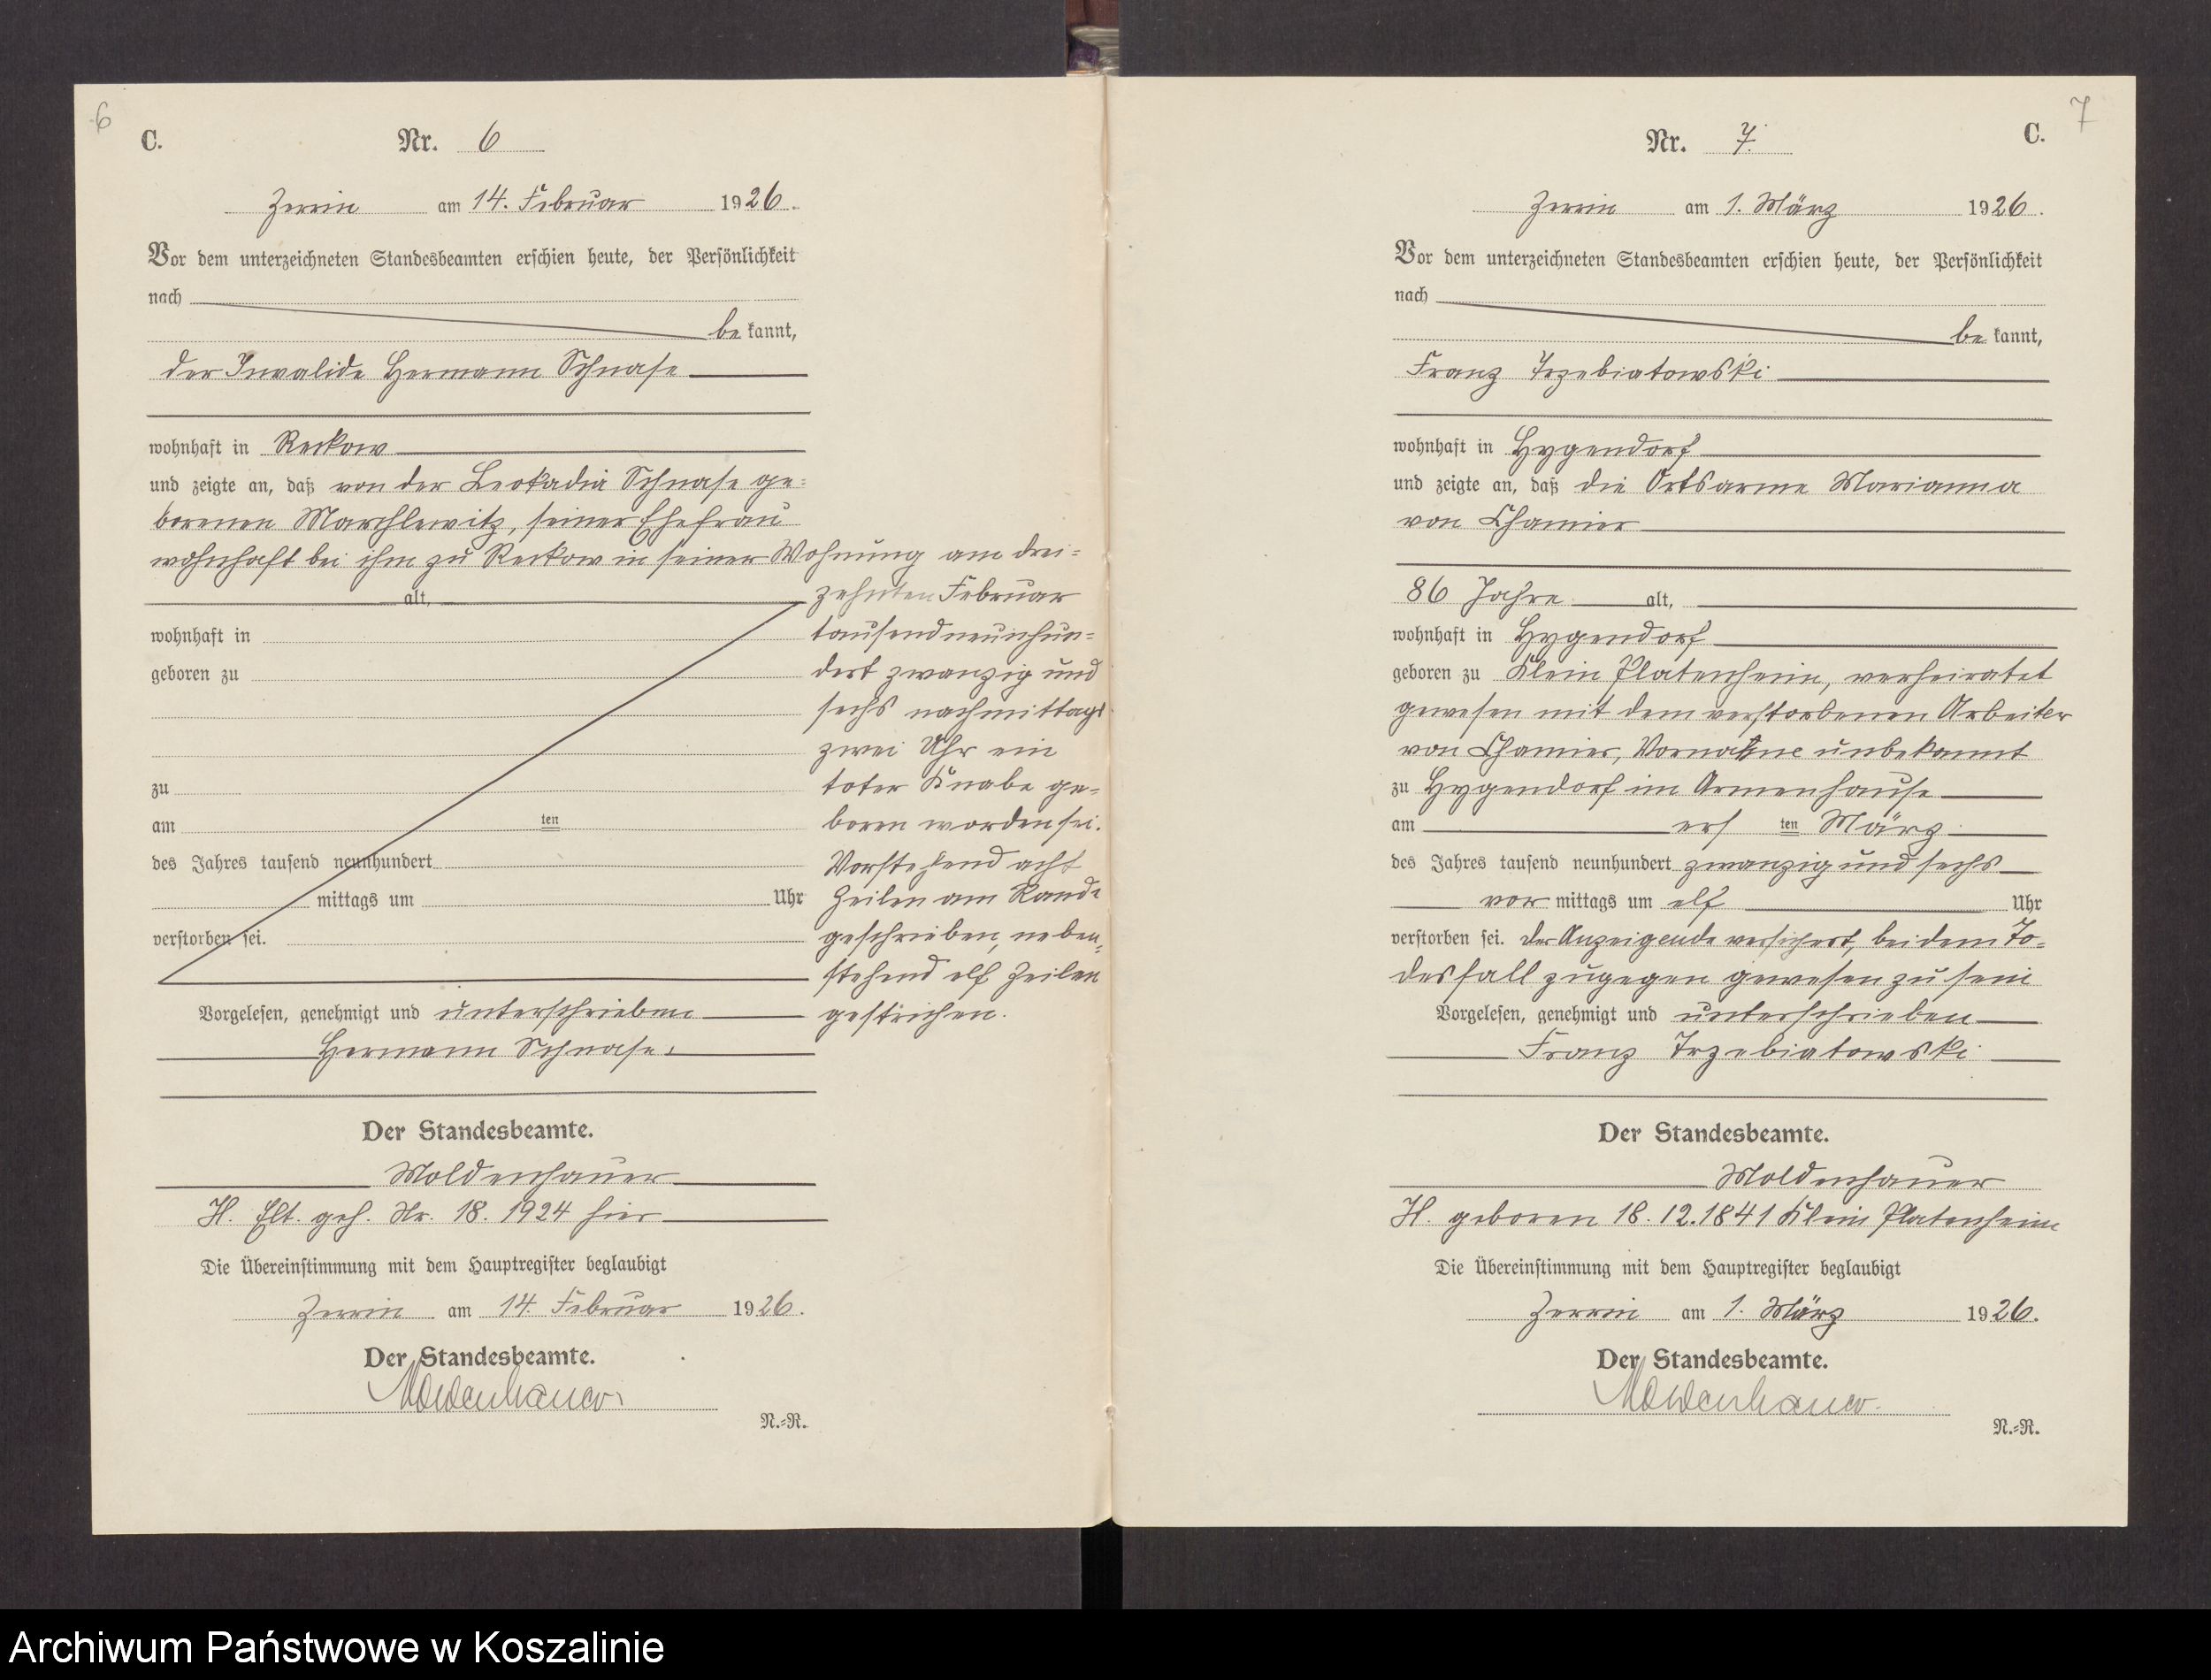 6
C.
Nr. 6
Zerrin am 14. Februar 1926.
Vor dem unterzeichneten Standesbeamten erschien heute, der Persönlichkeit
nach
be kannt,
der Invalide Hermann Schnase
wohnhaft in Reckow
und zeigte an, daß von der Leokadia Schnase ge=
borenen Marchlewitz, seiner Ehefrau
wohnhaft bei ihm zu Reckow in seiner Wohnung am drei=
alt, zehnten Februar
wohnhaft in tausendneunhun=
geboren zu dert zwanzig und
sechs nachmittags
zwei Uhr ein
zu toter Knabe ge=
am ten boren worden sei.
des Jahres tausend neunhundert Vorstehend acht
mittags um Uhr Zeilen am Rande
verstorben sei. geschrieben, neben=
stehend elf Zeilen
Vorgelesen, genehmigt und unterschrieben gestrichen.
Hermann Schnase.
Der Standesbeamte.
Moldenhauer
H. Elt. gesch. Nr. 18. 1924 hier
Die Übereinstimmung mit dem Hauptregister beglaubigt
Zerrin am 14. Februar 1926.
Der Standesbeamte.
Moldenhauer
N.=R.
7
C.
Nr. 7.
Zerrin am 1. März 1926.
Vor dem unterzeichneten Standesbeamten erschien heute, der Persönlichkeit
nach
be kannt,
Franz Trzebiatowski
wohnhaft in Hygendorf
und zeigte an, daß die Ortsarme Marianna
von Chamier
86 Jahre alt,
wohnhaft in Hygendorf
geboren zu Klein Platenheim, verheiratet
gewesen mit dem verstorbenen Arbeiter
von Chamier, Vorname unbekannt
zu Hygendorf im Armenhause
am ers ten März
des Jahres tausend neunhundert zwanzig und sechs
vor mittags um elf Uhr
verstorben sei. Der Anzeigende versichert, bei dem To=
desfall zugegen gewesen zu sein
Vorgelesen, genehmigt und unterschrieben
Franz Trzebiatowski
Der Standesbeamte.
Moldenhauer
H. geboren 18.12.1841 Klein Platenheim
Die Übereinstimmung mit dem Hauptregister beglaubigt
Zerrin am 1. März 1926.
Der Standesbeamte.
Moldenhauer.
N.=R.
Archiwum Państwowe w Koszalinie